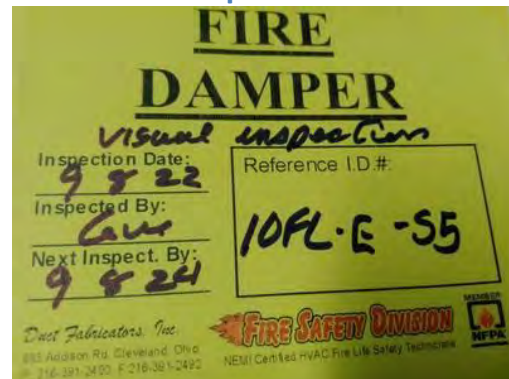 FIRE
DAMPER
visual inspection
Inspection Date:
9 8 22
Inspected By:
Next Inspect. By:
9 8 24
Reference I.D.#:
10FL-E-S5
Duct Fabricators, Inc.
Addison Rd. Cleveland, Ohio
P 216-391-2400 F 216-391-2492
FIRE SAFETY DIVISION
NEMI Certified HVAC Fire Life Safety Technicians
MEMBER
NFPA